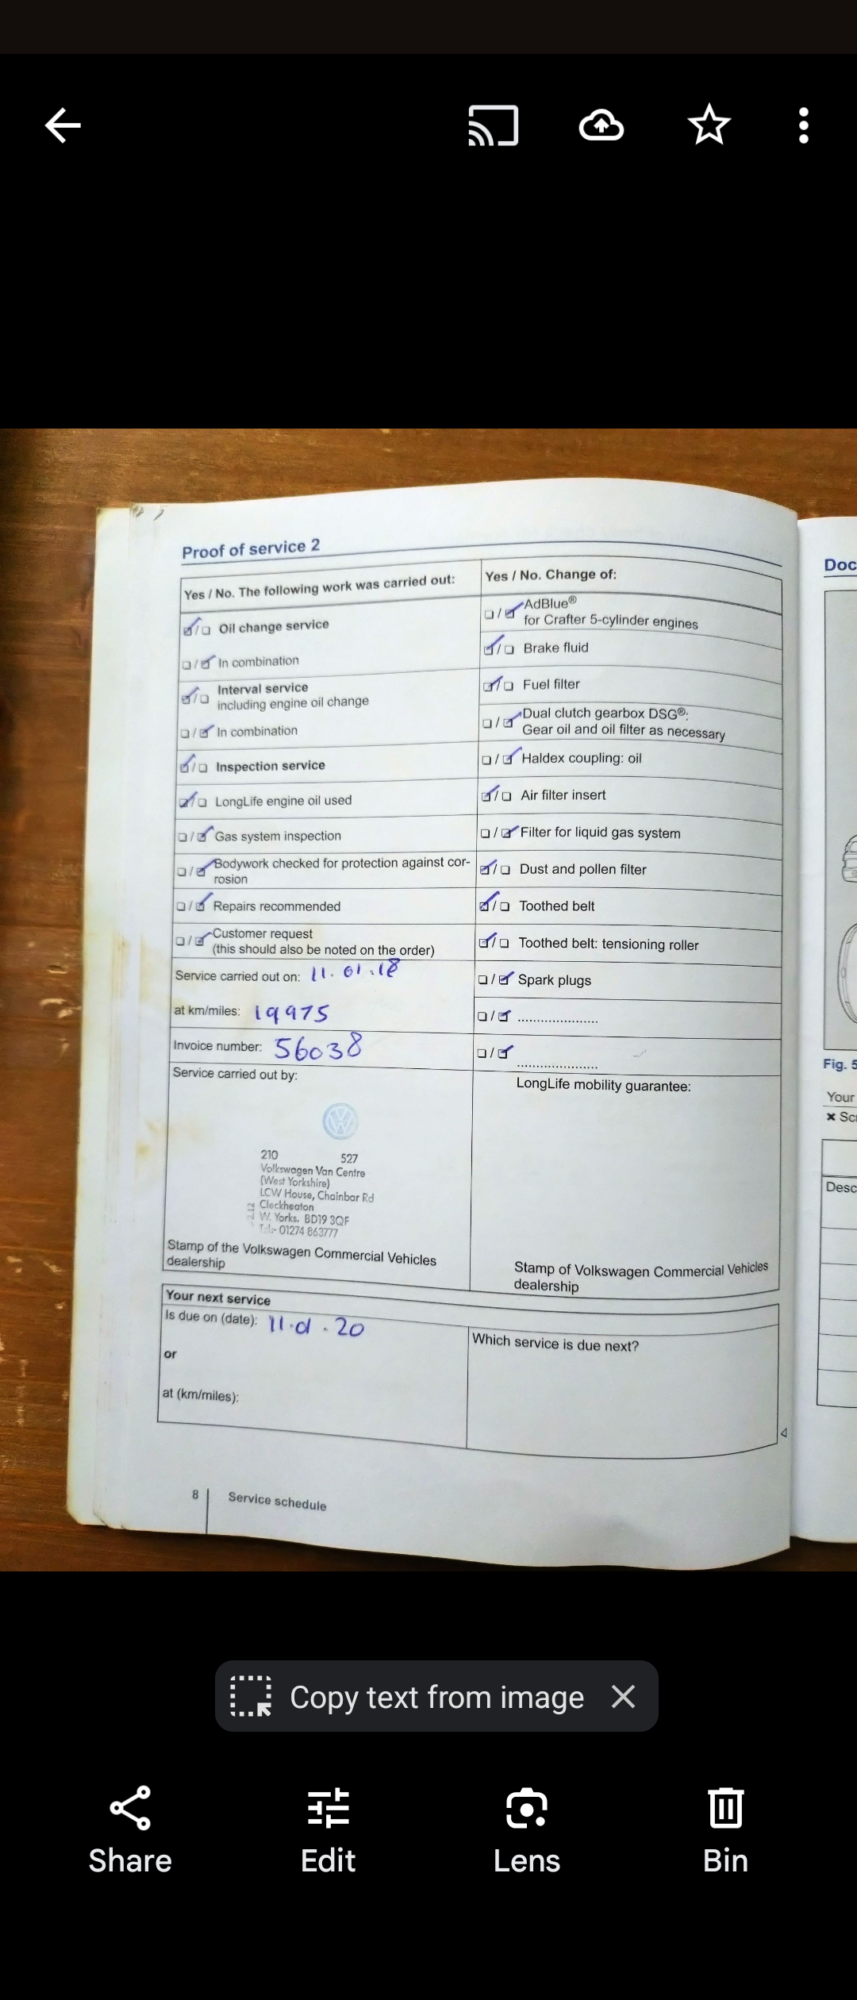 Proof of service 2
Yes / No. The following work was carried out:
Oil change service
In combination
Interval service
including engine oil change
In combination
Inspection service
LongLife engine oil used
Gas system inspection
Bodywork checked for protection against cor-
rosion
Repairs recommended
Customer request
(this should also be noted on the order)
Service carried out on: 11.01.18
at km/miles: 19975
Invoice number: 56038
Service carried out by:
210 527
Volkswagen Van Centre
(West Yorkshire)
LCW House, Chainbar Rd
Cleckheaton
W. Yorks. BD19 3QF
01274 863777
Stamp of the Volkswagen Commercial Vehicles
dealership
Yes / No. Change of:
AdBlue®
for Crafter 5-cylinder engines
Brake fluid
Fuel filter
Dual clutch gearbox DSG®:
Gear oil and oil filter as necessary
Haldex coupling: oil
Air filter insert
Filter for liquid gas system
Dust and pollen filter
Toothed belt
Toothed belt: tensioning roller
Spark plugs
.....................
.....................
LongLife mobility guarantee:
Stamp of Volkswagen Commercial Vehicles
dealership
Your next service
Is due on (date): 11.01.20
or
at (km/miles):
Which service is due next?
8
Service schedule
Doc
Fig. 5
Your
× Sc
Desc
Copy text from image
Share
Edit
Lens
Bin